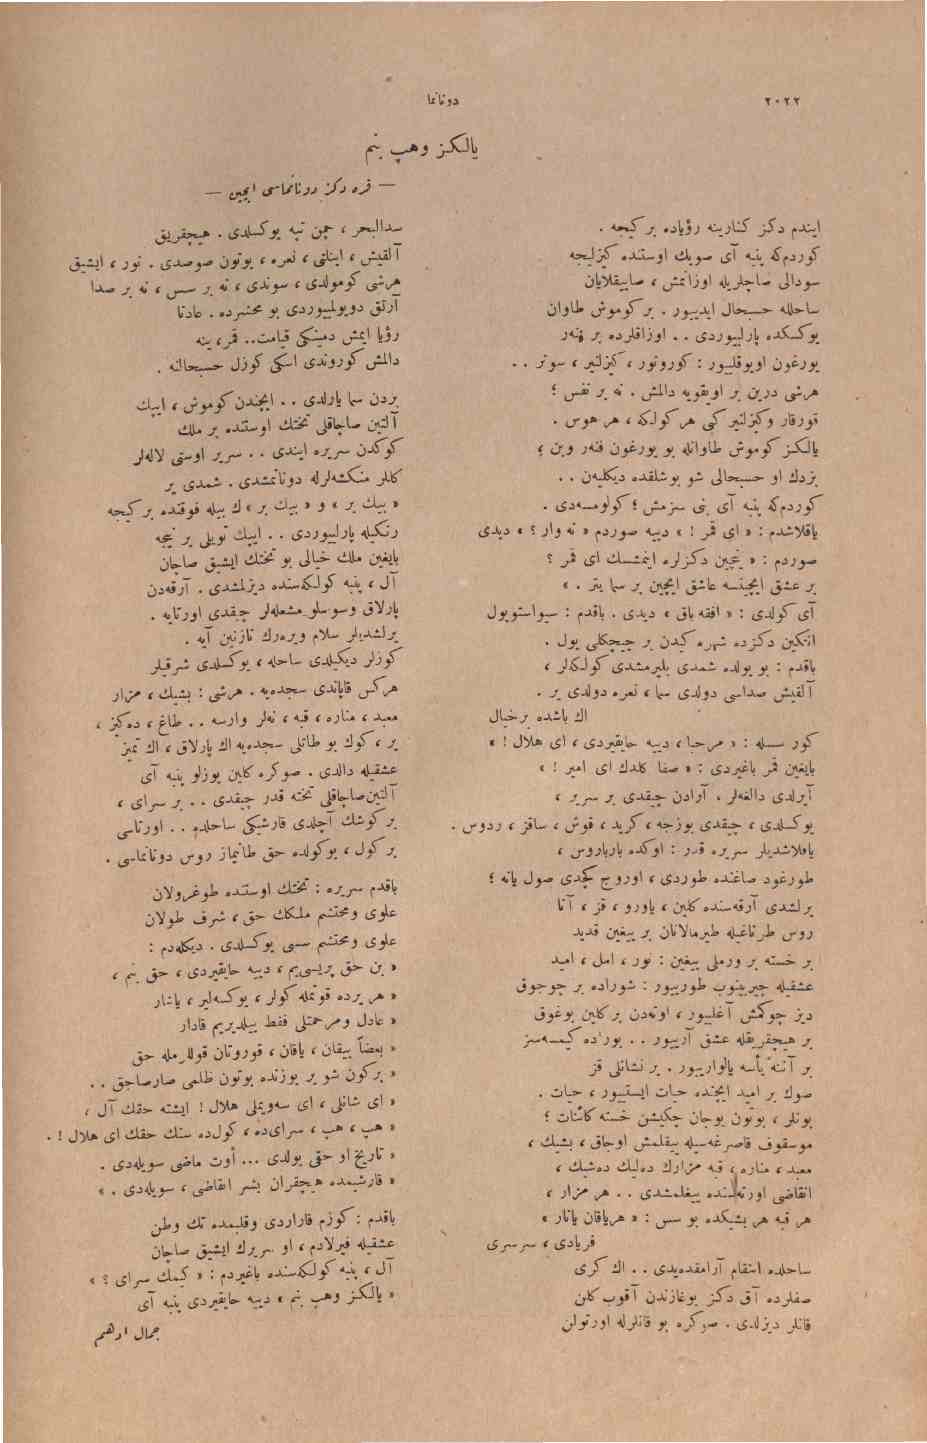 ٢٠٢٢
دونانما
يالكز وهپ بنم
— قره دكز دونانماسی ايچين —
ايندم دكز كنارينه رؤياده بر كيجه .
كوردم كه پنبه آی صويك اوستنده كيزليجه
سودالی صاچلريله اوزانمش ، صاييقلايان
ساحلله حسبحال ايدييور . بر كوموش طاوان
يوكسكده پارلييوردی . . اوزاقلرده بر فنهر
يورغون اويوقلييور : كورونور ، كيزلنير ، سونر . .
هرشی درين بر اويقويه دالمش . نه بر نفس ؛
قورقار وكزلنير كبی هر كولكه ، هر هوس .
يالكز كوموش طاوانله بو يورغون فنهر وبن ؛
بزدك او حسبحالی شو بوشلقده ديكليهن . .
كوردم كه پنبه آی بنی سزمش ؛ كولومسهدی .
ياقلاشدم : « ای قمر ! » دييه صوردم « نه وار ؟ » ديدی
صوردم : « نيچين دكزلره اينمشسك ای قمر ؟
بر عشق ايچينسه عاشق ايچين بر سما يتر . »
آی كولدی : « افقه باق » ديدی . باقدم : سيواستوپول
انكين دكزده شهره كيدن بر چيچكلی يول .
باقدم : بو يولده شمدی بليرمشدی كولكهلر ،
آلقيش صداسی دولدی سما ، نعره دولدی بر .
اك باشده بر خيال
كور سسله : « مرحبا ، دييه حايقيردی ، ای هلال ! »
بايغين قمر باغيردی : « صفا كلدك ای امير ! »
آيرلدی دالغهلر . آرادن چيقدی بر سرير ،
يوكسلدی ، چيقدی بوزجه ، كريد ، قوش ، ساقز ، ردوس .
ياقلاشديلر سريره قدر : اوكده بارباروس ،
طورغود صاغنده طوردی ، اوروج كچدی صول يانه ؛
يرلشدی آرقهسنده كلين ، ياورو ، قز ، آنا
روس طرناغيله طيرمالانان بر ييغين قديد
بر خسته بر ورملی ييغين : نور ، امل ، اميد
عشقيله چيرپينوب طورييور : شوراده بر چوجوق
ديز چوكمش آغلييور ، اوتهدن بر كلين بوغوق
بر هيچقريقله عشق آرييور . . بوراده كيمسهسز
بر آننه يأسه يالوارييور . بر نشانلی قز
صوك بر اميد ايچنده حيات ايستييور ، حيات .
بونلر ، بوتون بوجان چكيشن خسته كائنات ؛
موسقوف قاصرغهسيله ييقلمش اوجاق ، بشيك ،
معبد ، مناره ، قبه مزارك دهليك دهشيك ،
انقاضی اورتهسنده ييغلمشدی . . هر مزار ،
هر قبه هر بشيكده بو سس : « هرياقان يانار »
فريادی ، سرسری
ساحلده انتقام آرامقدهيدی . . اك كری
صفلرده آق دكز بوغازندن آقوب كلن
قانلر ديزلدی . صوكره بو قانلرله اورتولن
سدالبحر ، چمن تپه يوكسلدی . هيچقريق
آلقيش ، اينلتی ، نعره ، بوتون صوصدی . نور ، ايشيق
هرشی كومولدی ، سوندی ، نه بر سس ، نه بر صدا
آرتق دويولمييوردی بو محشرده . عادتا
رؤيا ايمش دمينكی قيامت.. قمر ، ينه
دالمش كوروندی اسكی كوزل حسبحالنه .
بردن سما يارلدی . . ايچندن كوموش ، ايپك
آلتين صاچاقلی تختك اوستنده بر ملك
كوكدن سريره ايندی . . سرير اوستی لالهلر
كللر منكشهلرله دونانمشدی . شمدی ير
« بيك بر » و « بيك بر » ك بيله فوقنده بر كيجه
رنكيله پارلييوردی . . ايپك تويلی بر نيجه
بايغين ملك خيالی بو تختك ايشيق صاچان
آل ، پنبه كولكهسنده ديزلمشدی . آرقهدن
پارلاق وسوسلو مشعلهلر چيقدی اورتايه .
يرلشديلر سلام ويرهرك نازنين آيه .
كوزلر ديكيلدی ساحله ، يوكسلدی شرقيلر
هركس قاپاندی سجدهيه . هرشی : بشيك ، مزار
معبد ، مناره ، قبه ، نهلر وارسه . . طاغ ، دهكيز ،
ير ، كوك بو طاتلی سجدهيه اك پارلاق ، اك تميز
عشقيله دالدی . صوكره كلين يوزلو پنبه آی
آلتين صاچاقلی تخته قدر چيقدی . . بر سرای ،
بر كوشك آچلدی قارشيكی ساحلده . . اورتاسی
بر كول ، بو كولده حق طانيماز روس دونانماسی .
باقدم سريره : تختك اوستنده طوغرولان
علوی ومحتشم ملكك حق ، شرف طولان
علوی ومحتشم سسی يوكسلدی . ديكلهدم :
« بن حق پريسیيم ، دييه حايقيردی ، حق بنم ،
« هر يرده قوتمله كولر ، يوكسهلير ، ياشار
« عادل ومرحمتلی فقط ييلديريم قادار
« بعضاً ييقان ، ياقان ، قوروتان قوللرمله حق
« بر كون شو ير يوزنده بوتون ظلمی صارصاجق . .
« ای شانلی ، ای سهويملی هلال ! ايشته حقك آل ،
« هپ ، هپ ، سرایده ، كولده سنك حقك ای هلال ! .
« تاريخ او حقی بولدی ... أوت ماضی سويلهدی .
« قارشيمده هيچقران بشر انقاضی ، سويلهدی . »
باقدم : كوزم قاراردی وقلبمده تك وطن
عشقيله فيرلادم ، او سريرك ايشيق صاچان
آل ، پنبه كولكهسنده باغيردم : « كيمك سرای ؟ »
« يالكز وهپ بنم » دييه حايقيردی پنبه آی
جمال ادهم